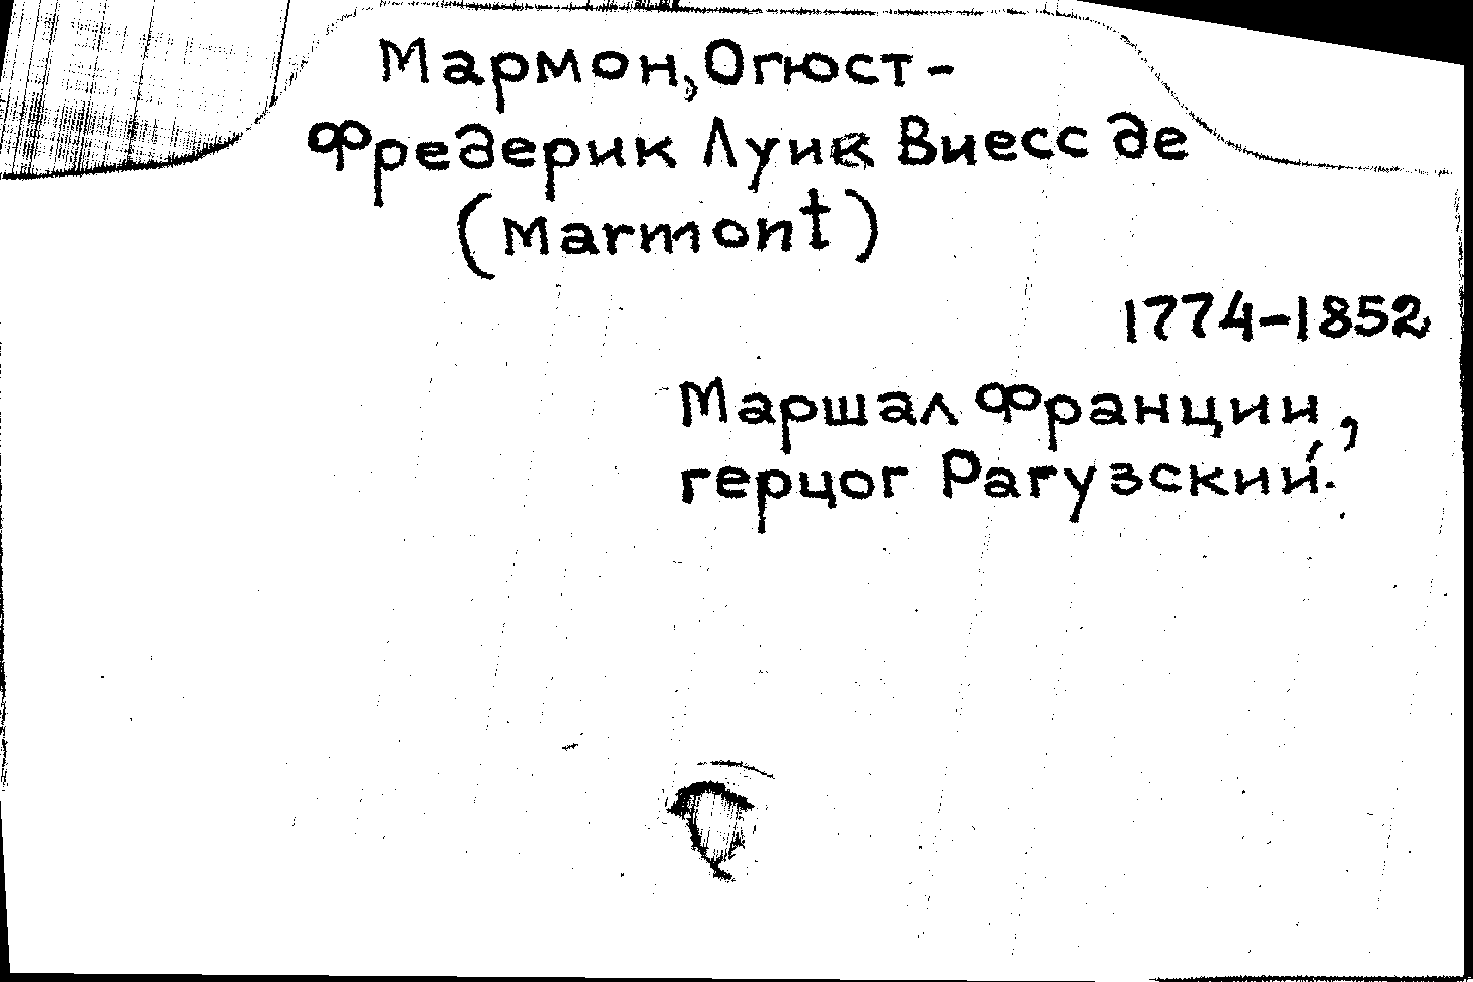 Мармон, Огюст-
Фредерик Луик Виесс де
(Marmont)
1774-1852
Маршал Франции,
герцог Рагузский.